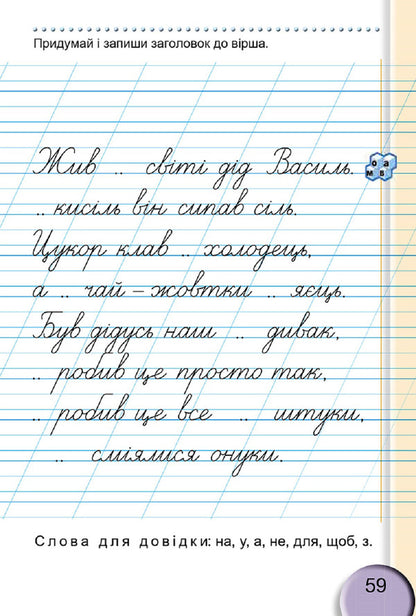 Придумай і запиши заголовок до вірша.
Жив .. світі дід Василь.
.. кисіль він сипав сіль.
Цукор клав .. холодець,
а .. чай – жовтки .. яєць.
Був дідусь наш .. дивак,
.. робив це просто так,
.. робив це все .. штуки,
.. сміялися онуки.
о а
м в
Слова для довідки: на, у, а, не, для, щоб, з.
59